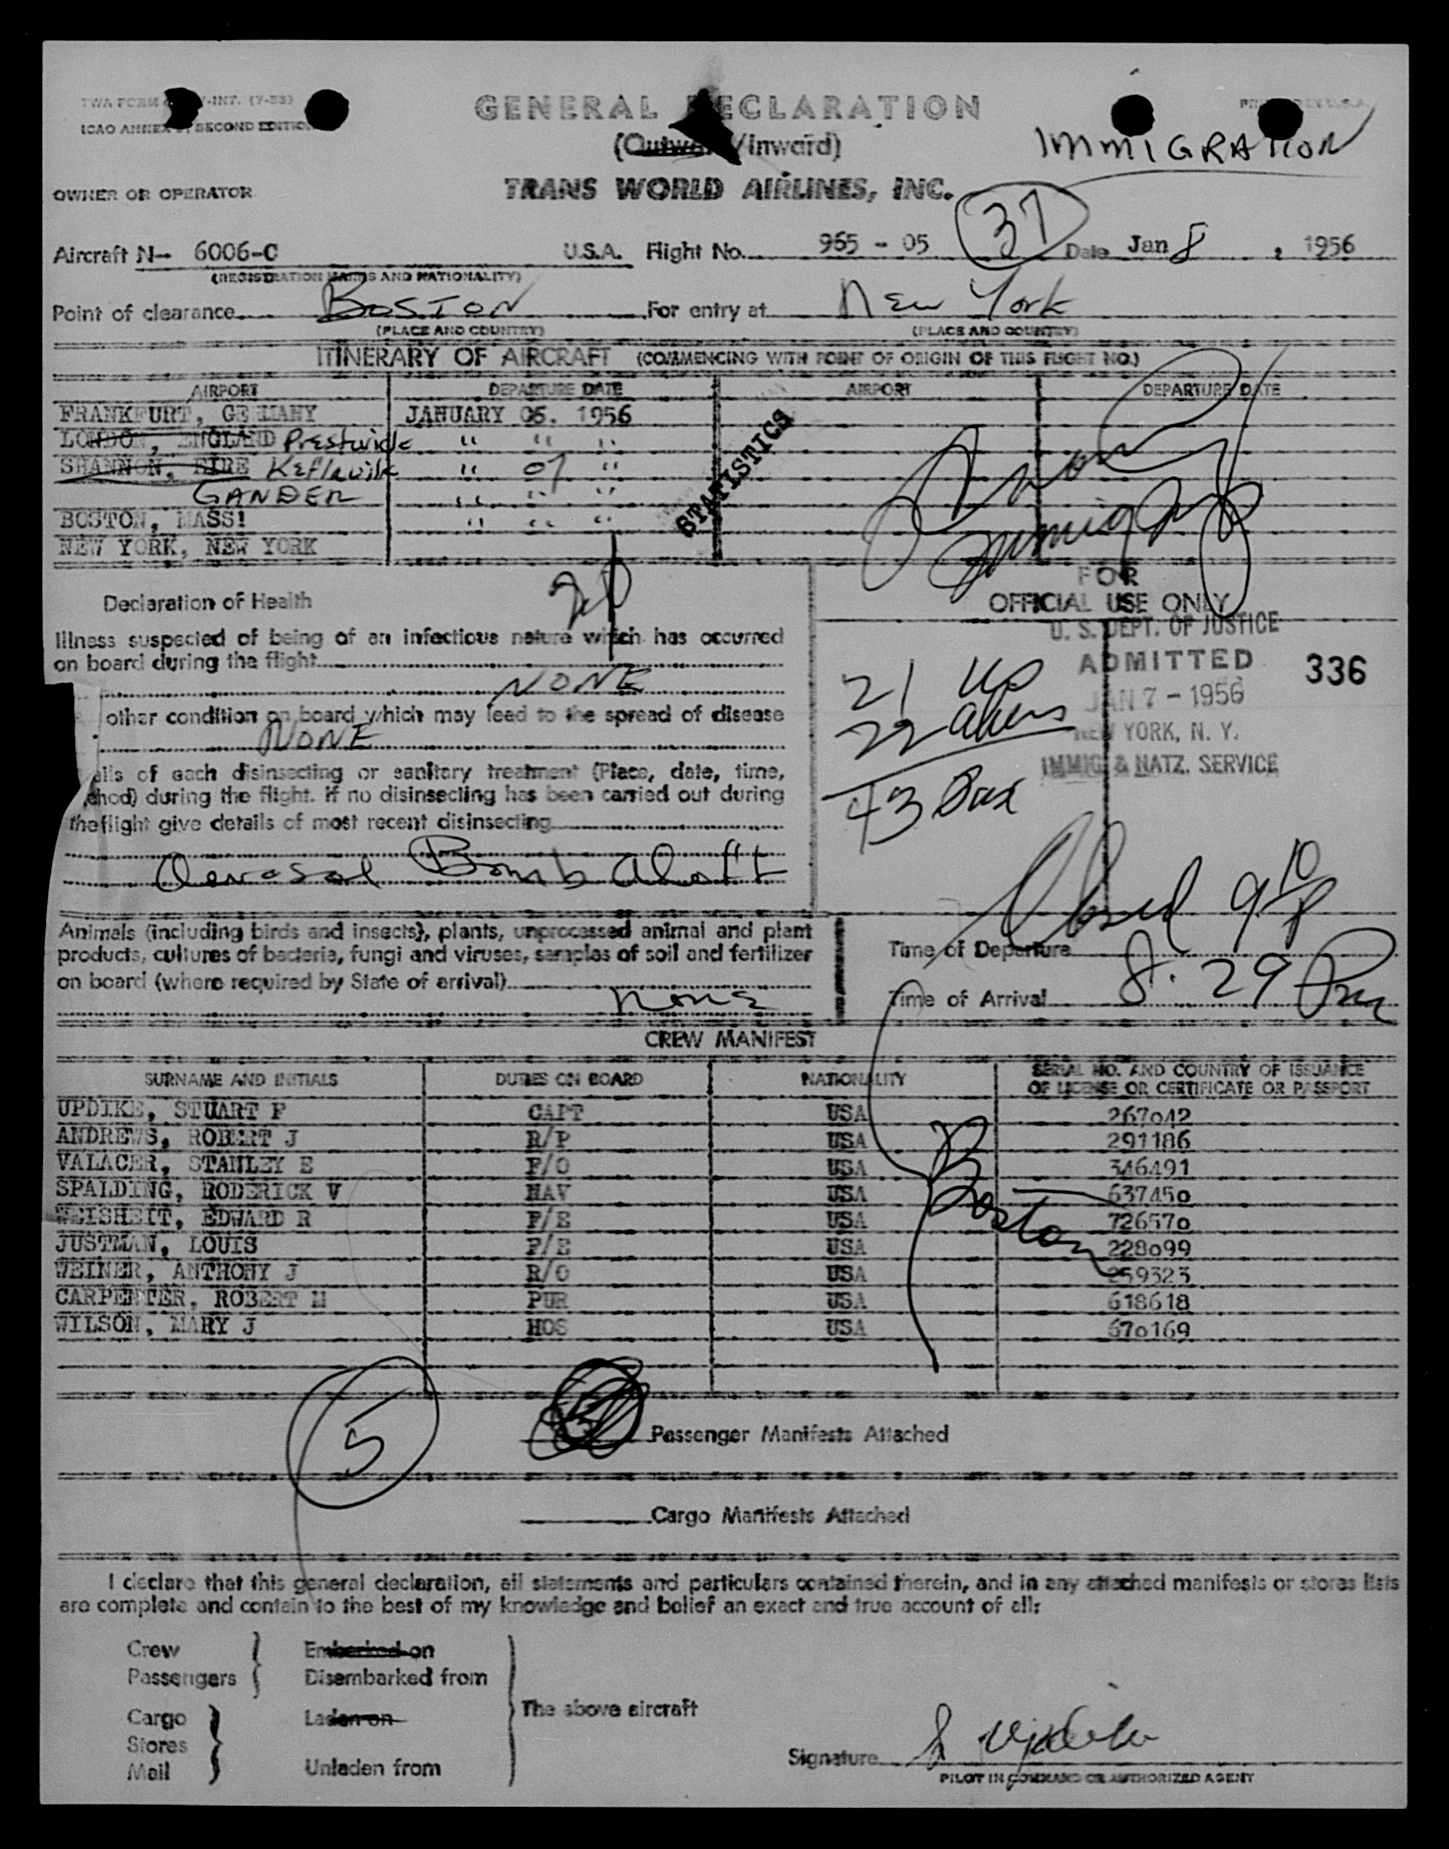 TWA FORM -INT. (7-53)
ICAO ANNEX 9, SECOND EDITION
GENERAL DECLARATION
(Outward/Inward)
IMMIGRATION
OWNER OR OPERATOR
TRANS WORLD AIRLINES, INC.
37
Aircraft N-- 6006-C U.S.A. Flight No. 965 - 05 Date Jan 8, 1956
(REGISTRATION MARKS AND NATIONALITY)
Point of clearance BOSTON For entry at New York
(PLACE AND COUNTRY) (PLACE AND COUNTRY)
ITINERARY OF AIRCRAFT (COMMENCING WITH POINT OF ORIGIN OF THIS FLIGHT NO.)
AIRPORT DEPARTURE DATE AIRPORT DEPARTURE DATE
FRANKFURT, GERMANY JANUARY 05. 1956
LONDON, ENGLAND Prestwick " " "
SHANNON, EIRE Keflavik " 07 "
GANDER " " "
BOSTON, MASS! " " "
NEW YORK, NEW YORK
STATISTICS
FOR
OFFICIAL USE ONLY
Declaration of Health
Illness suspected of being of an infectious nature which has occurred
on board during the flight
NONE
other condition on board which may lead to the spread of disease
NONE
ails of each disinsecting or sanitary treatment (Place, date, time,
ethod) during the flight. If no disinsecting has been carried out during
the flight give details of most recent disinsecting
Aerosol Bomb aloft
U. S. DEPT. OF JUSTICE
ADMITTED 336
JAN 7 - 1956
NEW YORK, N. Y.
IMMIG. & NATZ. SERVICE
21 US
22 aliens
43 Pax
Animals (including birds and insects), plants, unprocessed animal and plant
products, cultures of bacteria, fungi and viruses, samples of soil and fertilizer
on board (where required by State of arrival)
none
Closed 9 10 P
Time of Departure
Time of Arrival 8:29 Pm
CREW MANIFEST
SURNAME AND INITIALS DUTIES ON BOARD NATIONALITY SERIAL NO. AND COUNTRY OF ISSUANCE
OF LICENSE OR CERTIFICATE OR PASSPORT
UPDIKE, STUART F CAPT USA 267042
ANDREWS, ROBERT J R/P USA 291186
VALACER, STANLEY E F/O USA 346491
SPALDING, RODERICK V NAV USA 637450
WEISHEIT, EDWARD R F/E USA 726570
JUSTMAN, LOUIS F/E USA 228099
WEINER, ANTHONY J R/O USA 259323
CARPENTER, ROBERT H PUR USA 618618
WILSON, MARY J HOS USA 670169
Boston
5
Passenger Manifests Attached
Cargo Manifests Attached
I declare that this general declaration, all statements and particulars contained therein, and in any attached manifests or stores lists
are complete and contain to the best of my knowledge and belief an exact and true account of all:
Crew Embarked on
Passengers Disembarked from
Cargo Laden on
The above aircraft
Stores
Mail Unladen from
Signature S Updike
PILOT IN COMMAND OR AUTHORIZED AGENT